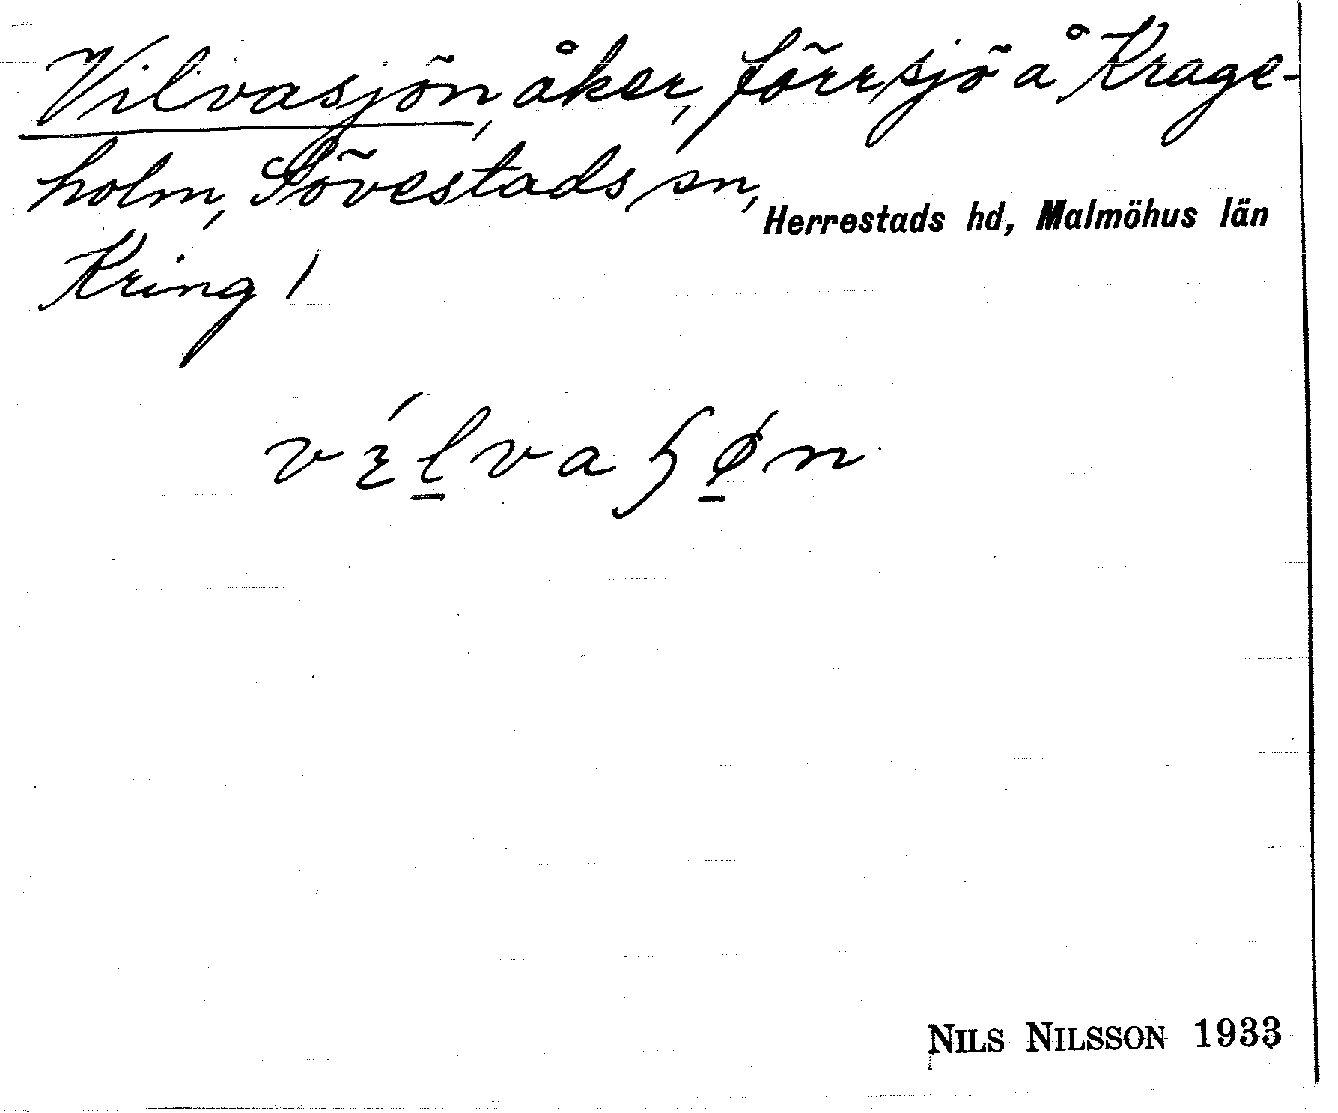 Vilvasjön, åker, förr sjö å Krage-
holm, Sövestads sn,
Herrestads hd, Malmöhus län
Kring 1
NILS NILSSON 1933